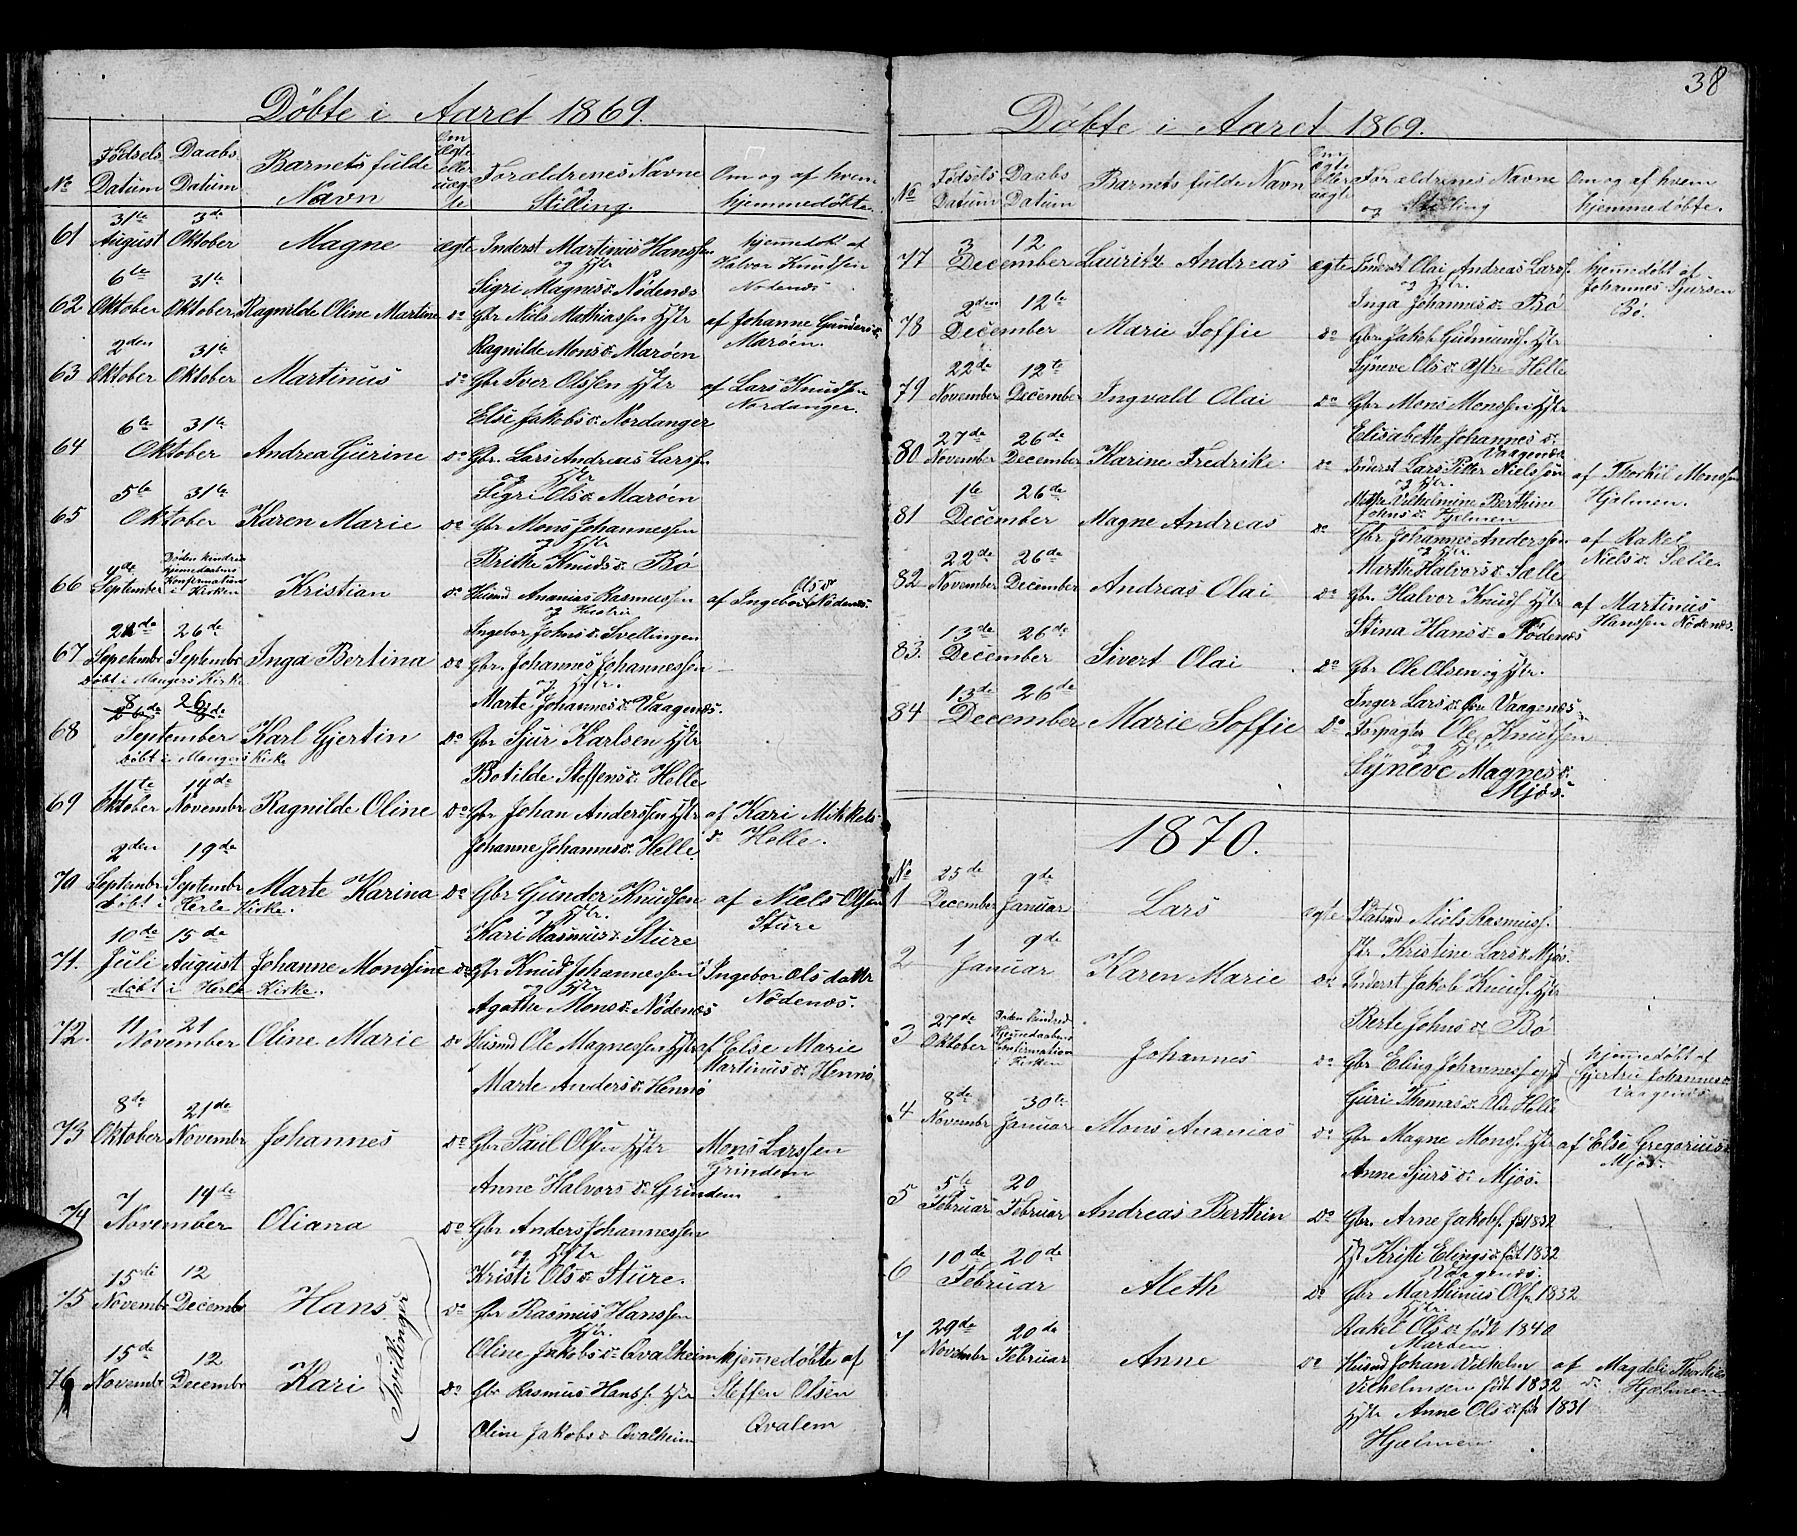 38
Döbte i Aaret 1869.
No
Födsels Datum
Daabs Datum
Barnets fulde Navn
Om Ægte eller uægte
Forældrenes Navne og Stilling.
Om og af hvem hjemmedöbte.
61 31te August 3de Oktober Magne ægte Inderst Martinus Hanssen og Hstr
Sigri Magnes D. Nödenæs
hjemedöbt af Halvor Knudsen Nödenæs
62 6te Oktober 31te Oktober Ragnilde Oline Martine do Gbr Niels Mathiassen Hstr
Ragnilde Mons D. Marøen
af Johanne Gunders D. Marøen.
63 2den Oktober 31te Oktober Martinus do Gbr Iver Olssen Hstr
Else Jakobs D. Nordanger
af Lars Knudsen Nordanger.
64 6te 31te Oktober Andrea Gurine do Gbr. Lars Andreas Larssen og Hstr
Sigri Ols D. Marøen
65 5te 31te Oktober Karen Marie do Gbr Mons Johannessen og Hstr
Brithe Knuds D. Bö
66 4de September Konfirmation i Kirken Kristian do Husmd Ananias Rasmussen og Hustru
Ingebor Johns D. Svellingen
af Ingebor Ols D. Nödenæs.
67 26de September Septembr Inga Bertina do Gbr. Johannes Johannessen og Hstr.
Döbt i Mangers Kirke
Marte Johannes D. Vaagenæs.
68 8 26 September Karl Gjertin do Gbr Sjur Karlsen Hstr
Döbt i Mangers Kirke
Botilde Steffens D. Helle
69 11te Oktober 14de Novembr Ragnilde Oline do Gbr Johan Anderssen Hstr
Johanne Johannes D. Helle
af Kari Mikkels D. Helle.
70 2den Septembr 19de Septembr Marte Karina do Gbr Gunder Knudsen og Hstr.
döbt i Herle Kirke.
Kari Rasmus D. Sture
af Niels Olsen Sture
71. 10de Juli 15de August Johanne Monsine do Gbr Knud Johannessen og Hstr
döbt i Herle Kirke.
Agatha Mons D. Nödenæs
Ingebor Ols datter Nödenæs.
72. 11 21 November Oline Marie do Husmd Ole Magnessen Hstr
Marte Anders D. Hennö
af Else Marie Martinus D. Hennö
73 8de Oktober 21de Novembr Johannes do Gbr Paul Olsen Hstr
Anne Halvors D. Grindem
Mons Larssen Grindem
74 7 14de November Oliana do Gbr Anders Johannessen og Hstr
Kristi Ols D. Sture.
75 15de Novembr 12 Decembr Hans do Gbr Rasmus Hanssen Hstr.
Oline Jakobs D. Qvalheim
Tvillinger
76 15de Novembr 12 Decembr Kari do Gbr Rasmus Hanss. Hstr
Oline Jakobs D. Qvalheim
hjemmedöbte af Steffen Olsen Qvalem
Döbte i Aaret 1869.
No
Födsels Datum
Daabs Datum
Barnets fulde Navn
Om ægte eller uægte
Forældrenes Navne og Stilling
Om og af hvem hjemmedöbte.
77 3 12 December Lauritz Andreas ægte Inderst Olai Andreas Larss. og Hstr.
Inga Johannes D. Bö
hjemedöbt af Johannes Sjursen Bö.
78 2den 12te December Marie Soffie do Gbr. Jakob Gudmunds. Hstr
Syneve Ols D. Ystre Helle
79 22de November 12te December Ingvald Olai do Gbr Mons Monssen Hstr
Elisabeth Johannes D. Vaagenæs
80 27de November 26de December Karine Fredrike. do Inderst Lars Petter Nielssen og Hstr.
Vilhelmine Berthine Johns D. Hjelmen
af Thorkil Monssen Hjelmen.
81 1te 26de December Magne Andreas do Gbr Johannes Anderssen og Hstr.
Marthe Halvors D. Sælle
af Rakel Niels D. Sælle.
82 22de November 26de December Andreas Olai do Gbr. Halvor Knuds. Hstr
Stina Hans D. Nödenæs
af Martinus Hanssen Nödenæs.
83. 13de 26de December Sivert Olai do Gbr Ole Olsen og Hstr.
Inger Lars D. Vaagenæs
84 13de 26de December Marie Soffie do Forpagter Ole Knudsen og Hstr
Syneve Magnes D. Mjös.
1870.
No
1 25de December 9de Januar Lars ægte Niels Rasmuss.
Hstr Kristine Lars D. Mjös.
2 1 9de Januar Karen Marie do Inderst Jakob Knuds. Hstr
Berte Johns D. Bö
3 27de Oktober Konfirmation i Kirken Johannes do Gbr Eling Johanness. og Hst
Guri Thomas D. Helle
hjemedöbt af Gjertru Johannes D. Vaagenæs
4 8de Novembr 30te Januar Mons Ananias do Gbr Magne Monss. Hstr
Anne Sjurs D. Mjös.
af Else Gregorius D. Mjös.
5 5te Februar 20 Februar Andreas Berthin do Gbr. Arne Jakobs. föt 1832
Hst Kristi Elings D. föt 1832
Vaagenæs.
6 10de 20de Februar Aleth do Gbr Marthinus Ols. f. 1832
Hstr.
Rakel Ols D. födt 1840
Marøen
7 29de Novembr 20de Februar Anne do Husmd Johan Vilhelm
Vilhelmsen födt 1832
Hstr Anne Ols D. föt 1831
Hjælmen
af Magdeli Thorkils D. Hjælmen